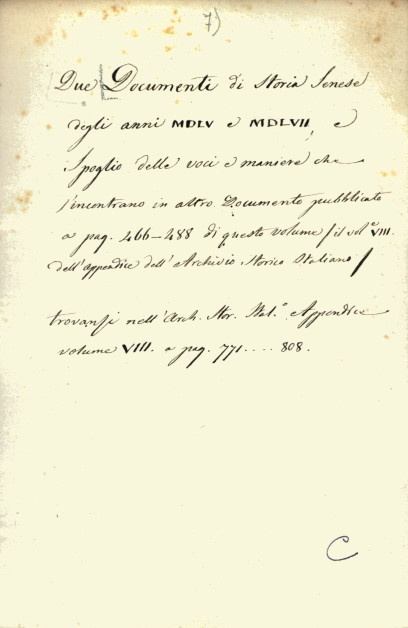 7)
Due Documenti di Storia Senese
degli anni MDLV e MDLVII, e
Spoglio delle voci e maniere che
s'incontrano in altro Documento pubblicato
a pag. 466-488 di questo volume / il vol.e VIII.
dell'appendice dell'Archivio Storico Italiano /
trovansi nell'Arch. Stor. Ital.o Appendice
volume VIII. a pag. 771.... 808.
C